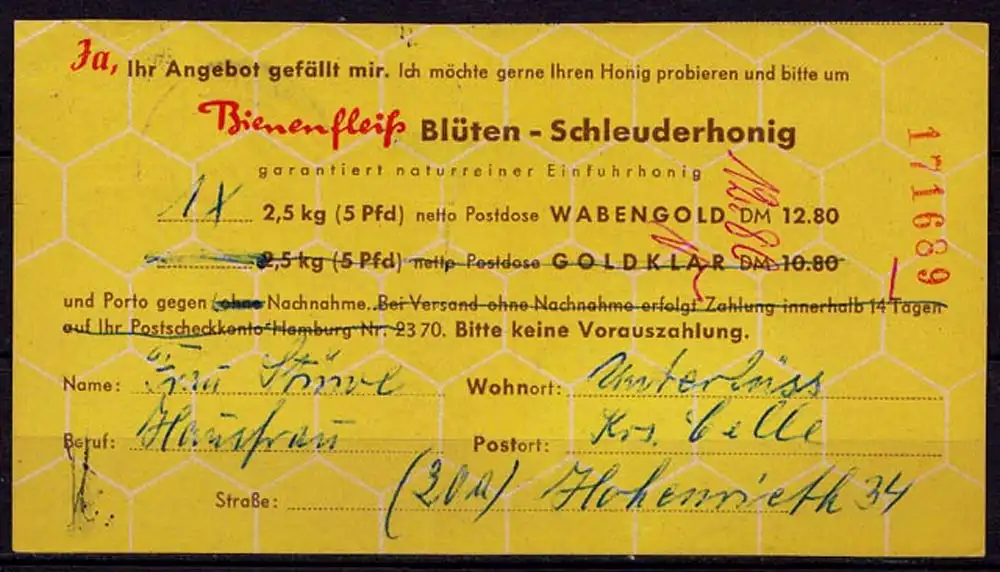 Ja, Ihr Angebot gefällt mir. Ich möchte gerne Ihren Honig probieren und bitte um
Bienenfleiß Blüten - Schleuderhonig
garantiert naturreiner Einfuhrhonig
1 X 2,5 kg (5 Pfd) netto Postdose WABENGOLD DM 12.80
2,5 kg (5 Pfd) netto Postdose GOLDKLAR DM 10.80
und Porto gegen ohne Nachnahme. Bei Versand ohne Nachnahme erfolgt Zahlung innerhalb 14 Tagen
auf Ihr Postscheckkonto Hamburg Nr. 2370. Bitte keine Vorauszahlung.
Name: Frau Wohnort: Unterlüss
Beruf: Hausfrau Postort: Krs. Celle
Straße: (20a) Hohenrieth 34
171689
12.80